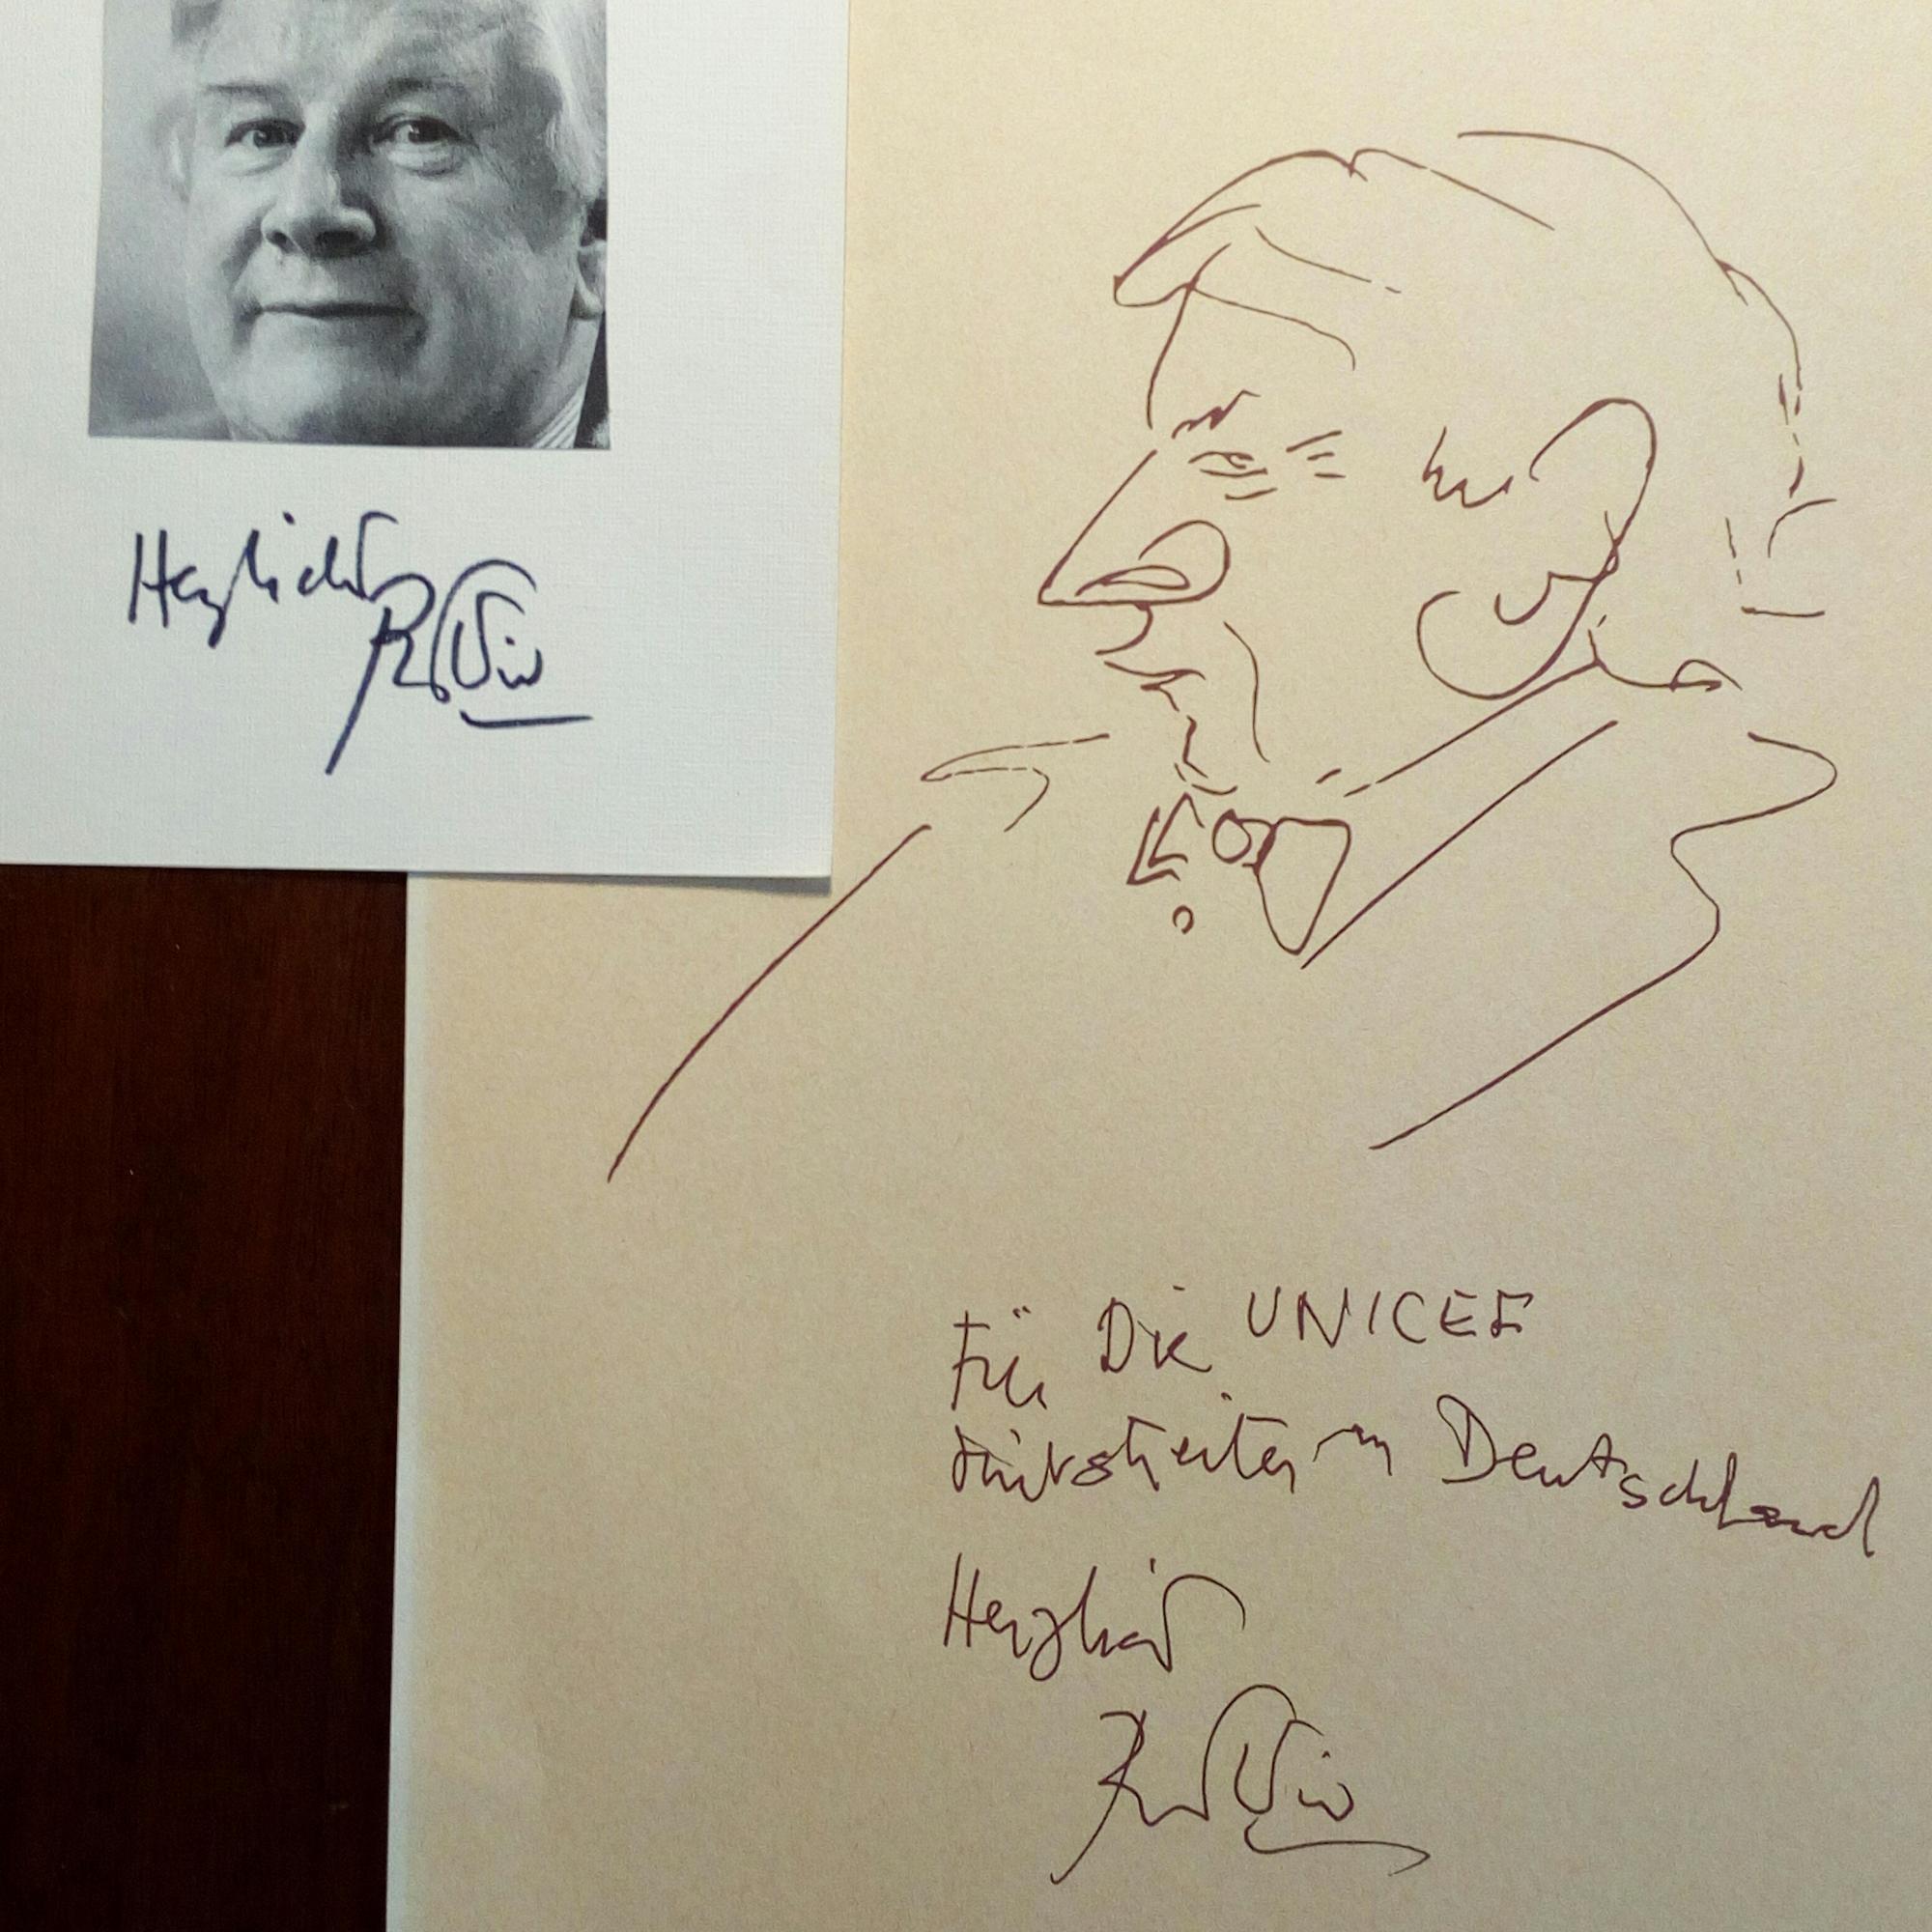 Herzlichst
Für Die UNICEF
Mitstreiter in Deutschland
Herzlichst